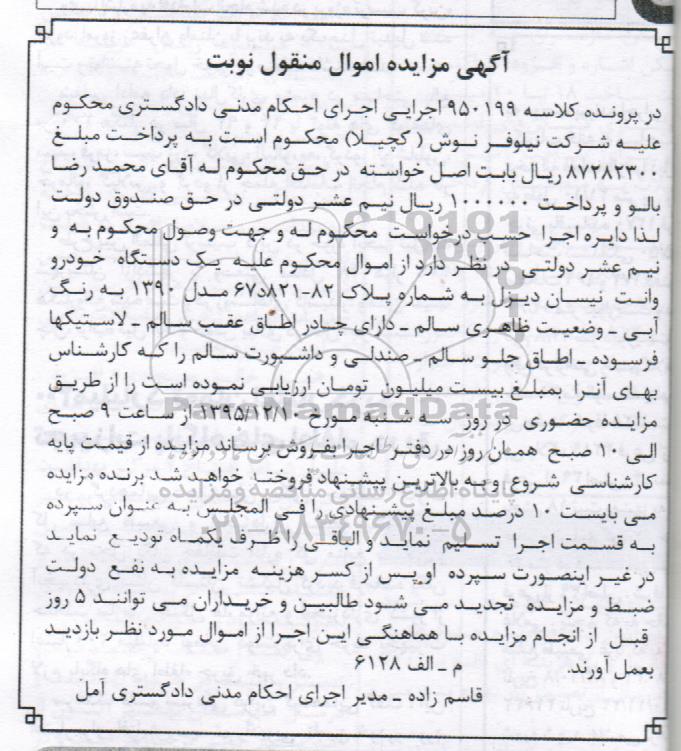 آگهی مزایده اموال منقول نوبت
در پرونده کلاسه ۹۵۰۱۹۹ اجرایی اجرای احکام مدنی دادگستری محکوم
علیه شرکت نیلوفر نوش (کچیلا) محکوم است به پرداخت مبلغ
۸۷۲۸۲۳۰۰ ریال بابت اصل خواسته در حق محکوم له آقای محمد رضا
بالو و پرداخت ۱۰۰۰۰۰۰ ریال نیم عشر دولتی در حق صندوق دولت
لذا دایره اجرا حسب درخواست محکوم له و جهت وصول محکوم به و
نیم عشر دولتی در نظر دارد از اموال محکوم علیه یک دستگاه خودرو
وانت نیسان دیزل به شماره پلاک ۸۲-۸۲۱د۶۷ مدل ۱۳۹۰ به رنگ
آبی ـ وضعیت ظاهری سالم ـ دارای چادر اطاق عقب سالم ـ لاستکها
فرسوده ـ اطاق جلو سالم ـ صندلی و داشپورت سالم را که کارشناس
بهای آنرا بمبلغ بیست میلیون تومان ارزیابی نموده است را از طریق
مزایده حضوری در روز مورخ ۱۳۹۵/۱۲/۱۰ از ساعت ۹ صبح
الی ۱۰ صبح همان روز در دفتر اجرا بفروش برساند مزایده از قیمت پایه
کارشناسی شروع و به بالاترین پیشنهاد فروخته خواهد شد برنده مزایده
می بایست ۱۰ درصد مبلغ پیشنهادی را فی المجلس به عنوان سپرده
به قسمت اجرا تسلیم نماید و الباقی را ظرف یکماه تودیع نماید
در غیر اینصورت سپرده او پس از کسر هزینه مزایده به نفع دولت
ضبط و مزایده تجدید می شود طالبین و خریداران می توانند ۵ روز
قبل از انجام مزایده با هماهنگی این اجرا از اموال مورد نظر بازدید
بعمل آورند. م ـ الف ۶۱۲۸
قاسم زاده ـ مدیر اجرای احکام مدنی دادگستری آمل
ParsNamadData
پایگاه اطلاع رسانی مناقصه و مزایده
۰۲۱-۸۸۳۴۹۶۷۰-۵